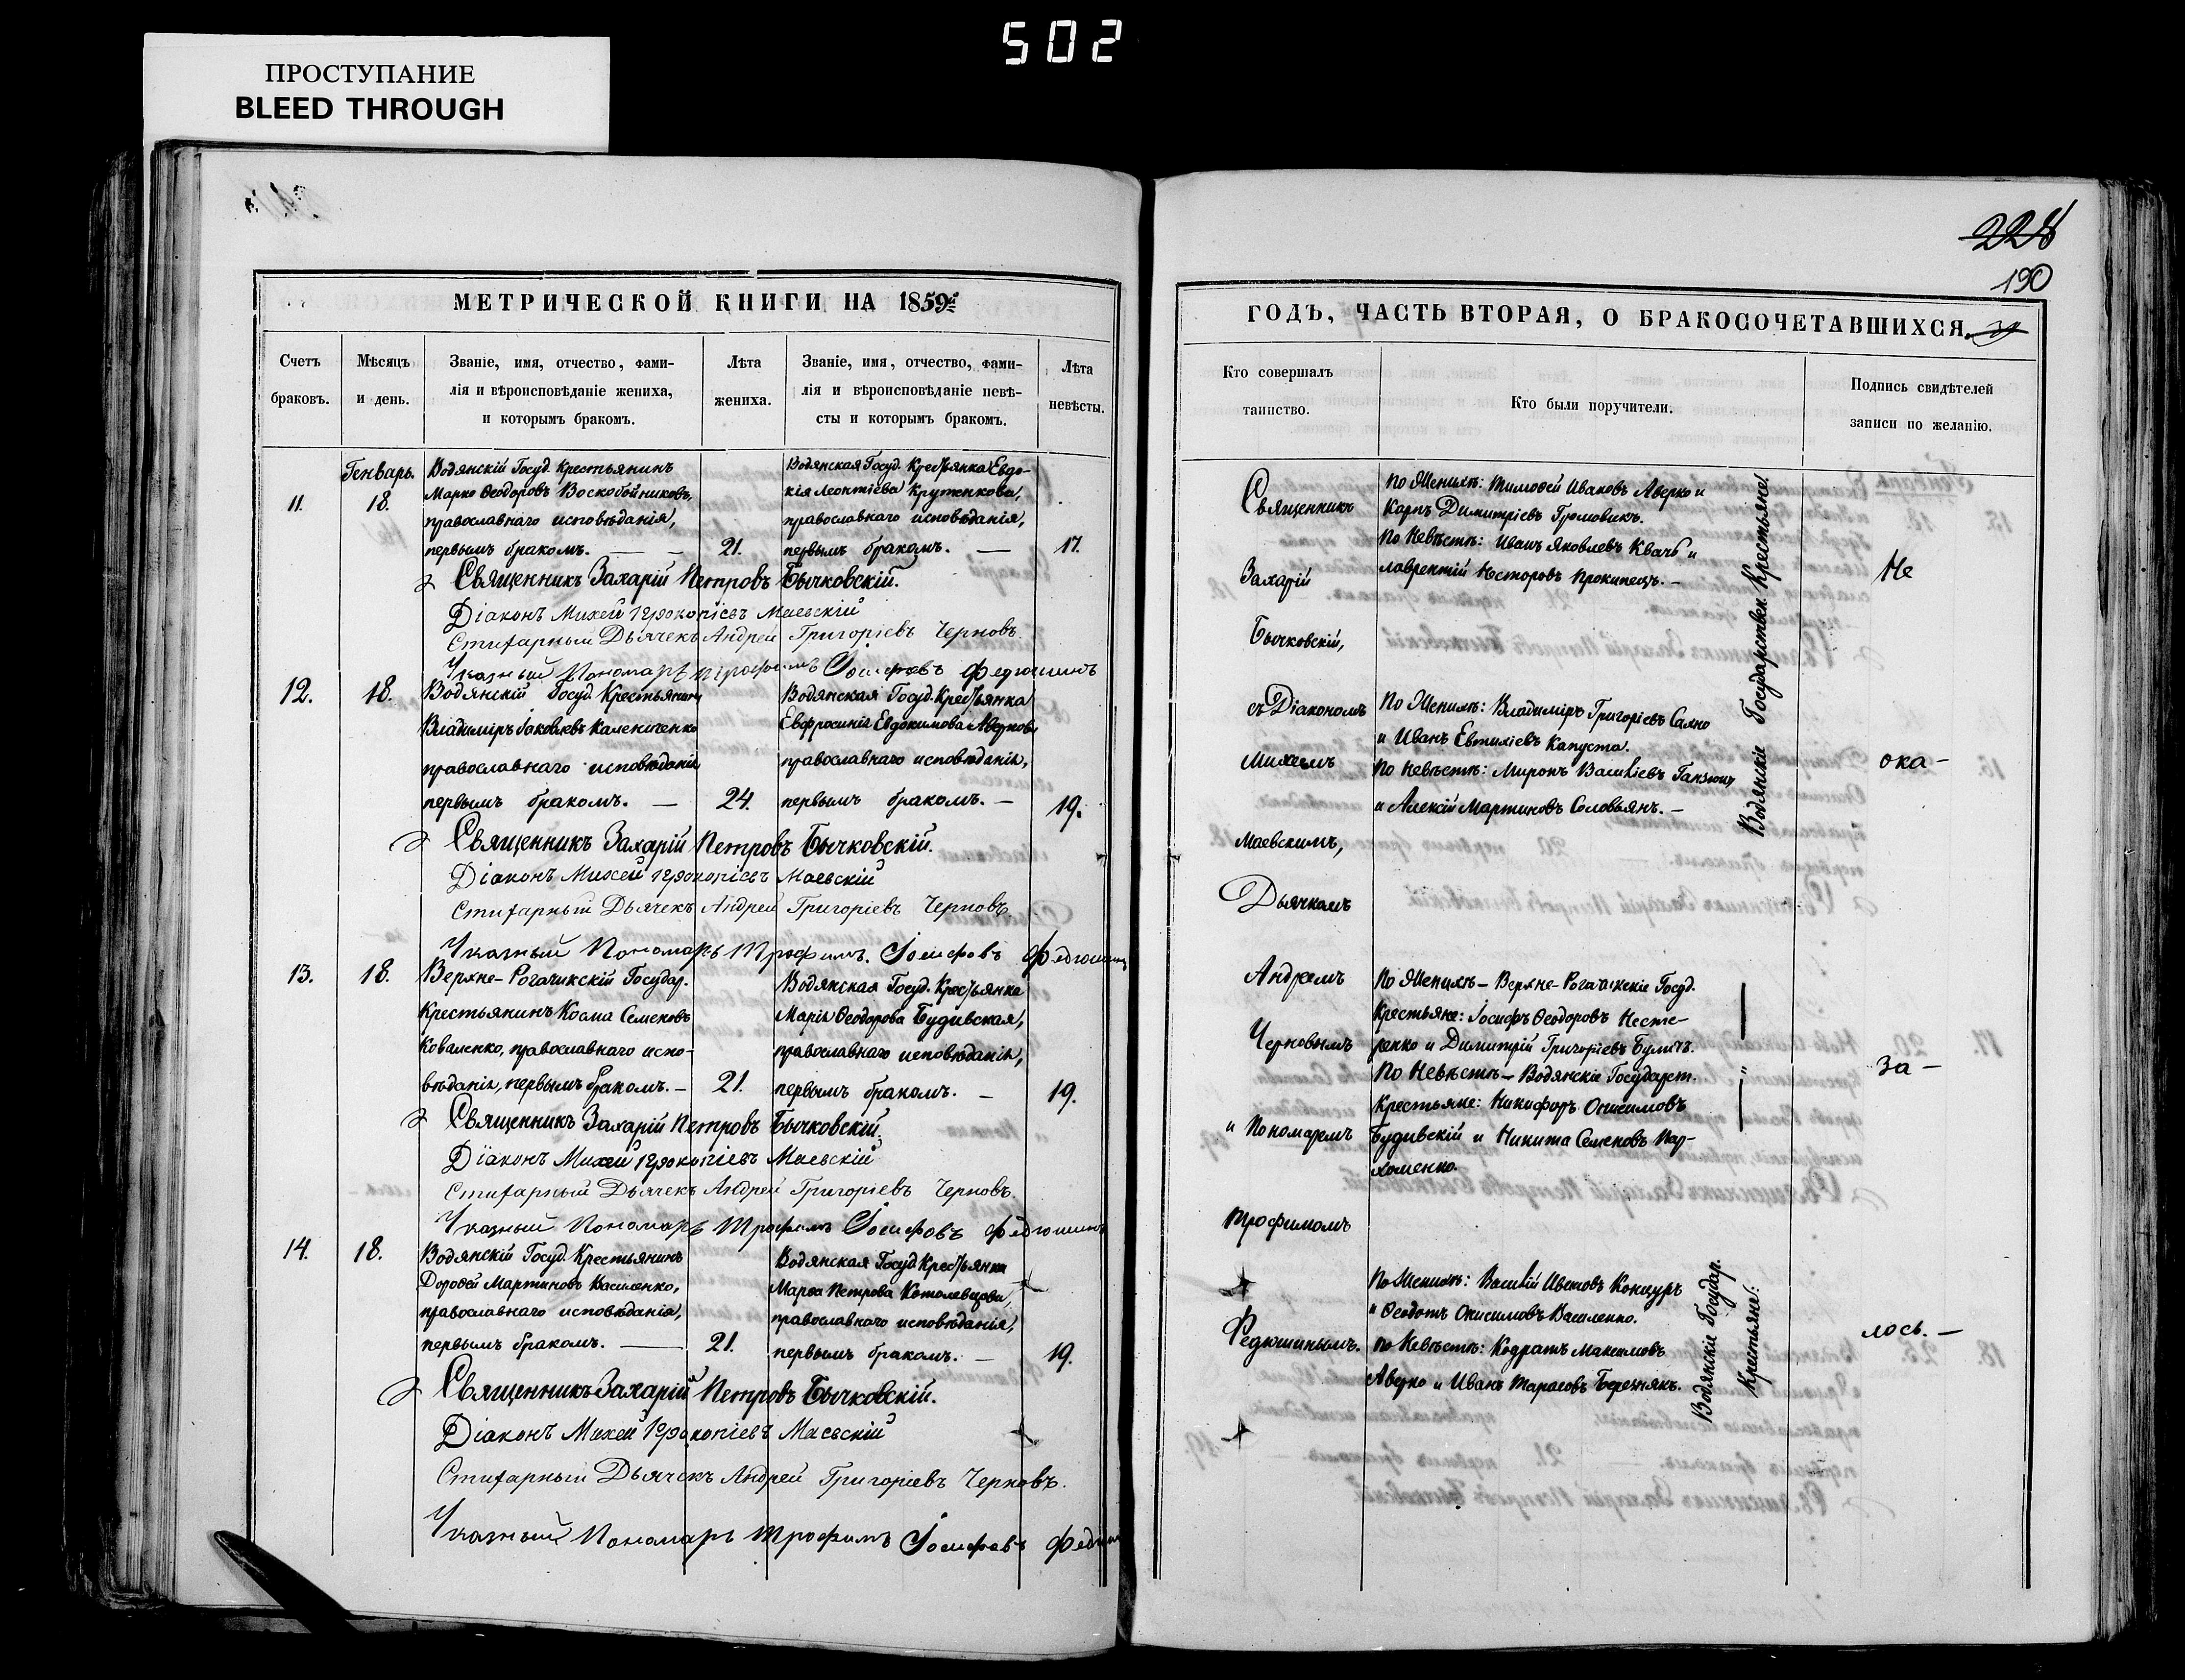 502
ПРОСТУПАНИЕ
BLEED THROUGH
228
190
МЕТРИЧЕСКОЙ КНИГИ НА 1859й
Счетъ браковъ.
Мѣсяцъ и день.
Званіе, имя, отчество, фами-
лія и вѣроисповѣданіе жениха,
и которымъ бракомъ.
Лѣта жениха.
Званіе, имя, отчество, фами-
лія и вѣроисповѣданіе невѣ-
сты и которымъ бракомъ.
Лѣта невѣсты.
Генварь.
11.
18.
Водянскій Госуд. Крестьянинъ
Марко Ѳеодоровъ Воскобойниковъ,
православнаго исповѣданія,
первымъ бракомъ. —
21.
Водянская Госуд. Крестьянка Евдо-
кія Леонтіева Крутенкова,
православнаго исповѣданія,
первымъ бракомъ. —
17.
Священникъ Захарій Петровъ Бычковскій.
Діаконъ Михей Прокопіевъ Маевскій
Стихарный Дьячекъ Андрей Григоріевъ Черновъ.
Указный Пономарь Трофимъ Іосифовъ Федюшинъ
12.
18.
Водянскій Госуд. Крестьянинъ
Владиміръ Іаковлевъ Калениченко
православнаго исповѣданія
первымъ бракомъ. —
24.
Водянская Госуд. Крестьянка
Евфросинія Евдокимова Аверкова
православнаго исповѣданія,
первымъ бракомъ. —
19.
Священникъ Захарій Петровъ Бычковскій.
Діаконъ Михей Прокопіевъ Маевскій
Стихарный Дьячекъ Андрей Григоріевъ Черновъ.
Указный Пономарь Трофимъ Іосифовъ Федюшинъ
13.
18.
Верхне-Рогачикскій Государ.
Крестьянинъ Косма Семеновъ
Коваленко, православнаго испо-
вѣданія, первымъ бракомъ. —
21.
Водянская Госуд. Крестьянка
Марія Ѳеодорова Будивская,
православнаго исповѣданія,
первымъ бракомъ. —
19.
Священникъ Захарій Петровъ Бычковскій.
Діаконъ Михей Прокопіевъ Маевскій
Стихарный Дьячекъ Андрей Григоріевъ Черновъ.
Указный Пономарь Трофимъ Іосифовъ Федюшинъ
14.
18.
Водянскій Госуд. Крестьянинъ
Дороѳей Мартиновъ Василенко,
православнаго исповѣданія,
первымъ бракомъ. —
21.
Водянская Госуд. Крестьянка
Марѳа Петрова
православнаго исповѣданія,
первымъ бракомъ. —
19.
Священникъ Захарій Петровъ Бычковскій.
Діаконъ Михей Прокопіевъ Маевскій
Стихарный Дьячекъ Андрей Григоріевъ Черновъ.
Указный Пономарь Трофимъ Іосифовъ
ГОДЪ, ЧАСТЬ ВТОРАЯ, О БРАКОСОЧЕТАВШИХСЯ.
Кто совершалъ таинство.
Кто были поручители.
Подпись свидѣтелей
записи по желанію.
Священникъ
Захарій
Бычковскій,
съ Діакономъ
Михеемъ
Маевскимъ,
Дьячкомъ
Андреемъ
Черновымъ
и Пономаремъ
Трофимомъ
Федюшинымъ.
По Женихѣ: Тимоѳей Ивановъ Аверко и
Карпъ Димитріевъ Громовикъ.
По Невѣстѣ: Иванъ Яковлевъ Квачъ и
Лаврентій Несторовъ Прокипецъ. —
По Женихѣ: Владиміръ Григоріевъ Саяно
и Иванъ Евтихіевъ Капуста.
По Невѣстѣ: Миронъ Василіевъ
и Алексій Мартиновъ Соловьянъ. —
Водянскіе Государствен. Крестьяне.
По Женихѣ — Верхне-Рогачикскіе Госуд.
Крестьяне: Іосифъ Ѳеодоровъ Несте-
ренко и Димитрій Григоріевъ Булитъ.
По Невѣстѣ — Водянскіе Государст.
Крестьяне: Никифоръ Онисимовъ
Будивскій и Никита Семеновъ Пар-
хоменко.
По Женихѣ: Василій Ивановъ Концуръ
и Ѳеодотъ Онисимовъ Василенко.
По Невѣстѣ: Кодратъ Максимовъ
Аверко и Иванъ Тарасовъ Бережнякъ.
Водянскіе Государ.
Крестьяне.
Не
ока —
за —
лось. —